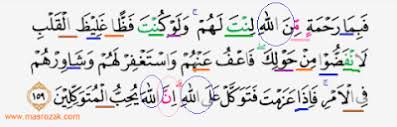 فَبِمَا رَحْمَةٍ مِّنَ اللّٰهِ لِنْتَ لَهُمْ ۚ وَلَوْ كُنْتَ فَظًّا غَلِيْظَ الْقَلْبِ
لَانْفَضُّوْا مِنْ حَوْلِكَ ۖ فَاعْفُ عَنْهُمْ وَاسْتَغْفِرْ لَهُمْ وَشَاوِرْهُمْ
فِى الْاَمْرِۚ فَاِذَا عَزَمْتَ فَتَوَكَّلْ عَلَى اللّٰهِ ۗ اِنَّ اللّٰهَ يُحِبُّ الْمُتَوَكِّلِيْنَ ١٥٩
www.masrozak.com